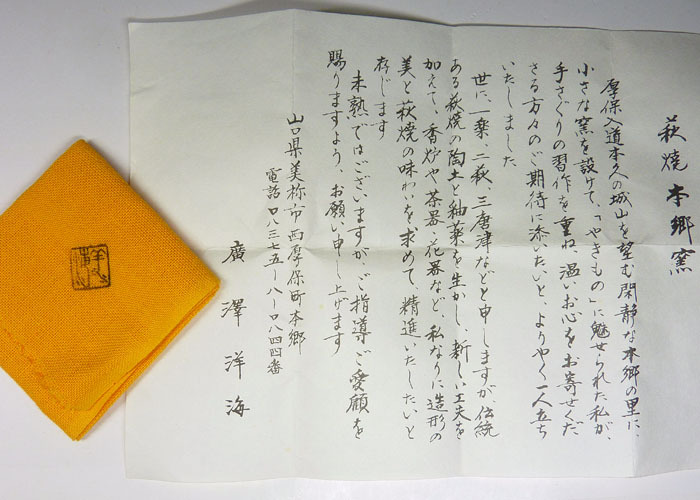 萩焼 本郷窯
厚保入道本久の城山を望む閑静な本郷の里に、
小さな窯を設けて、「やきもの」に魅せられた私が、
手さぐりの習作を重ね、温いお心をお寄せくだ
さる方々のご期待に添いたいと、ようやく一人立ち
いたしました
世に、一楽、二萩、三唐津などと申しますが、伝統
ある萩焼の陶土と釉薬を生かし、新しい工夫を
加えて、香炉や、茶器、花器など、私なりに造形の
美と萩焼の味わいを求めて、精進いたしたいと
存じます
未熟ではございますが、ご指導ご愛顧を
賜りますよう、お願い申し上げます
山口県美祢市西厚保町本郷
電話〇八三七五－八－〇八四四番
廣澤洋海